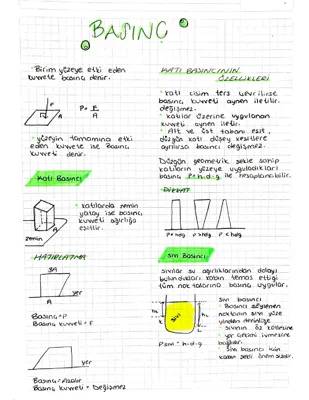 BASINÇ
Birim yüzeye etki eden
kuvvete basınç denir.
P = F
A
F
A
* yüzeyin tamamına etki
eden kuvvete ise Basınç
kuvveti denir.
Katı Basıncı
* katılarda zemin
yatay ise basınç
kuvveti ağırlığa
eşittir.
zemin
HATIRLATMA
3A
A
yer
Basınç = P
Basınç kuvveti = F
yer
Basınç = Azalır
Basınç kuvveti = Değişmez
KATI BASINCININ
ÖZELLİKLERİ
* katı cisim ters çevrilirse
basınç kuvveti aynen iletilir.
değişmez.
* katılar üzerine uygulanan
kuvveti aynen iletir.
* Alt ve üst tabanı eşit,
düzgün katı düşey kesitlere
ayrılırsa basıncı değişmez.
Düzgün geometrik şekle sahip
katıların yüzeye uyguladıkları
basınç P=h.d.g ile hesaplanabilir.
DİKKAT
P=hdg P>hdg P<hdg
Sıvı Basıncı
sıvılar su ağırlıklarından dolayı
bulundukları kabın temas ettiği
tüm noktalarına basınç uygular.
sıvı
h
Psıvı = h.d.g
sıvı basıncı
* Basıncı söylenen
noktanın sıvı yüze
yinden derinliğe
* sıvının öz kütlesine
yer çekimi ivmesine
bağlıdır.
* Sıvı basıncı için
kabın şekli önemsizdir.